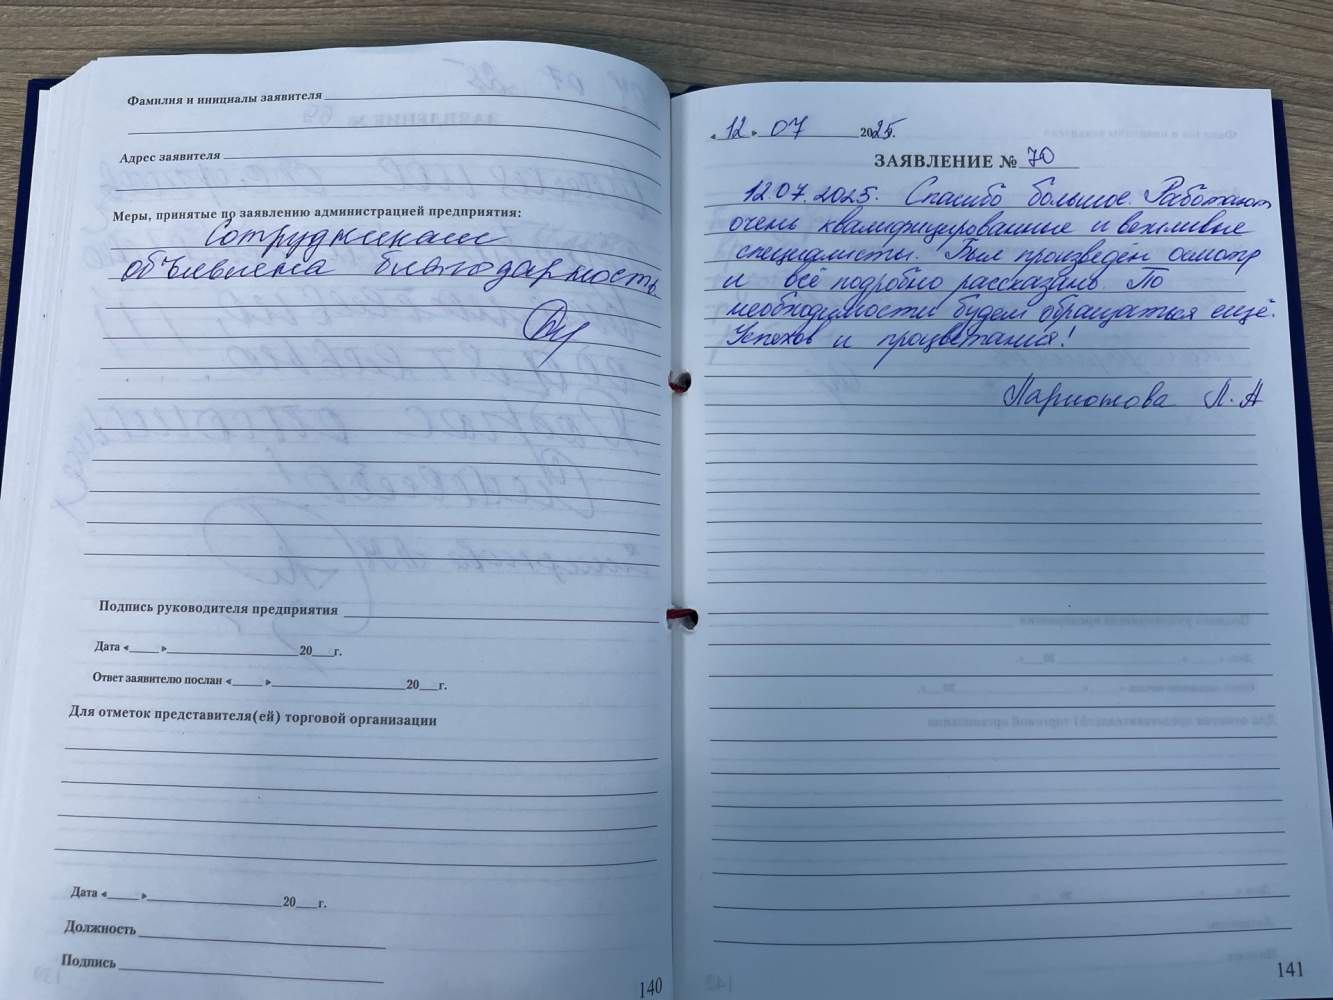 Фамилия и инициалы заявителя
Адрес заявителя
Меры, принятые по заявлению администрацией предприятия:
Сотрудникам
объявлена благодарность
Подпись руководителя предприятия
Дата «____» ____ 20__г.
Ответ заявителю послан «____» ____ 20__г.
Для отметок представителя(ей) торговой организации
Дата «____» ____ 20__г.
Должность
Подпись
140
«12» 07 2025г.
ЗАЯВЛЕНИЕ № 70
12.07.2025. Спасибо большое. Работают
очень квалифицированные и вежливые
специалисты. Был произведён осмотр
и всё подробно рассказано. По
необходимости будем обращаться ещё.
Успехов и процветания!
Ларионова Л.А
141